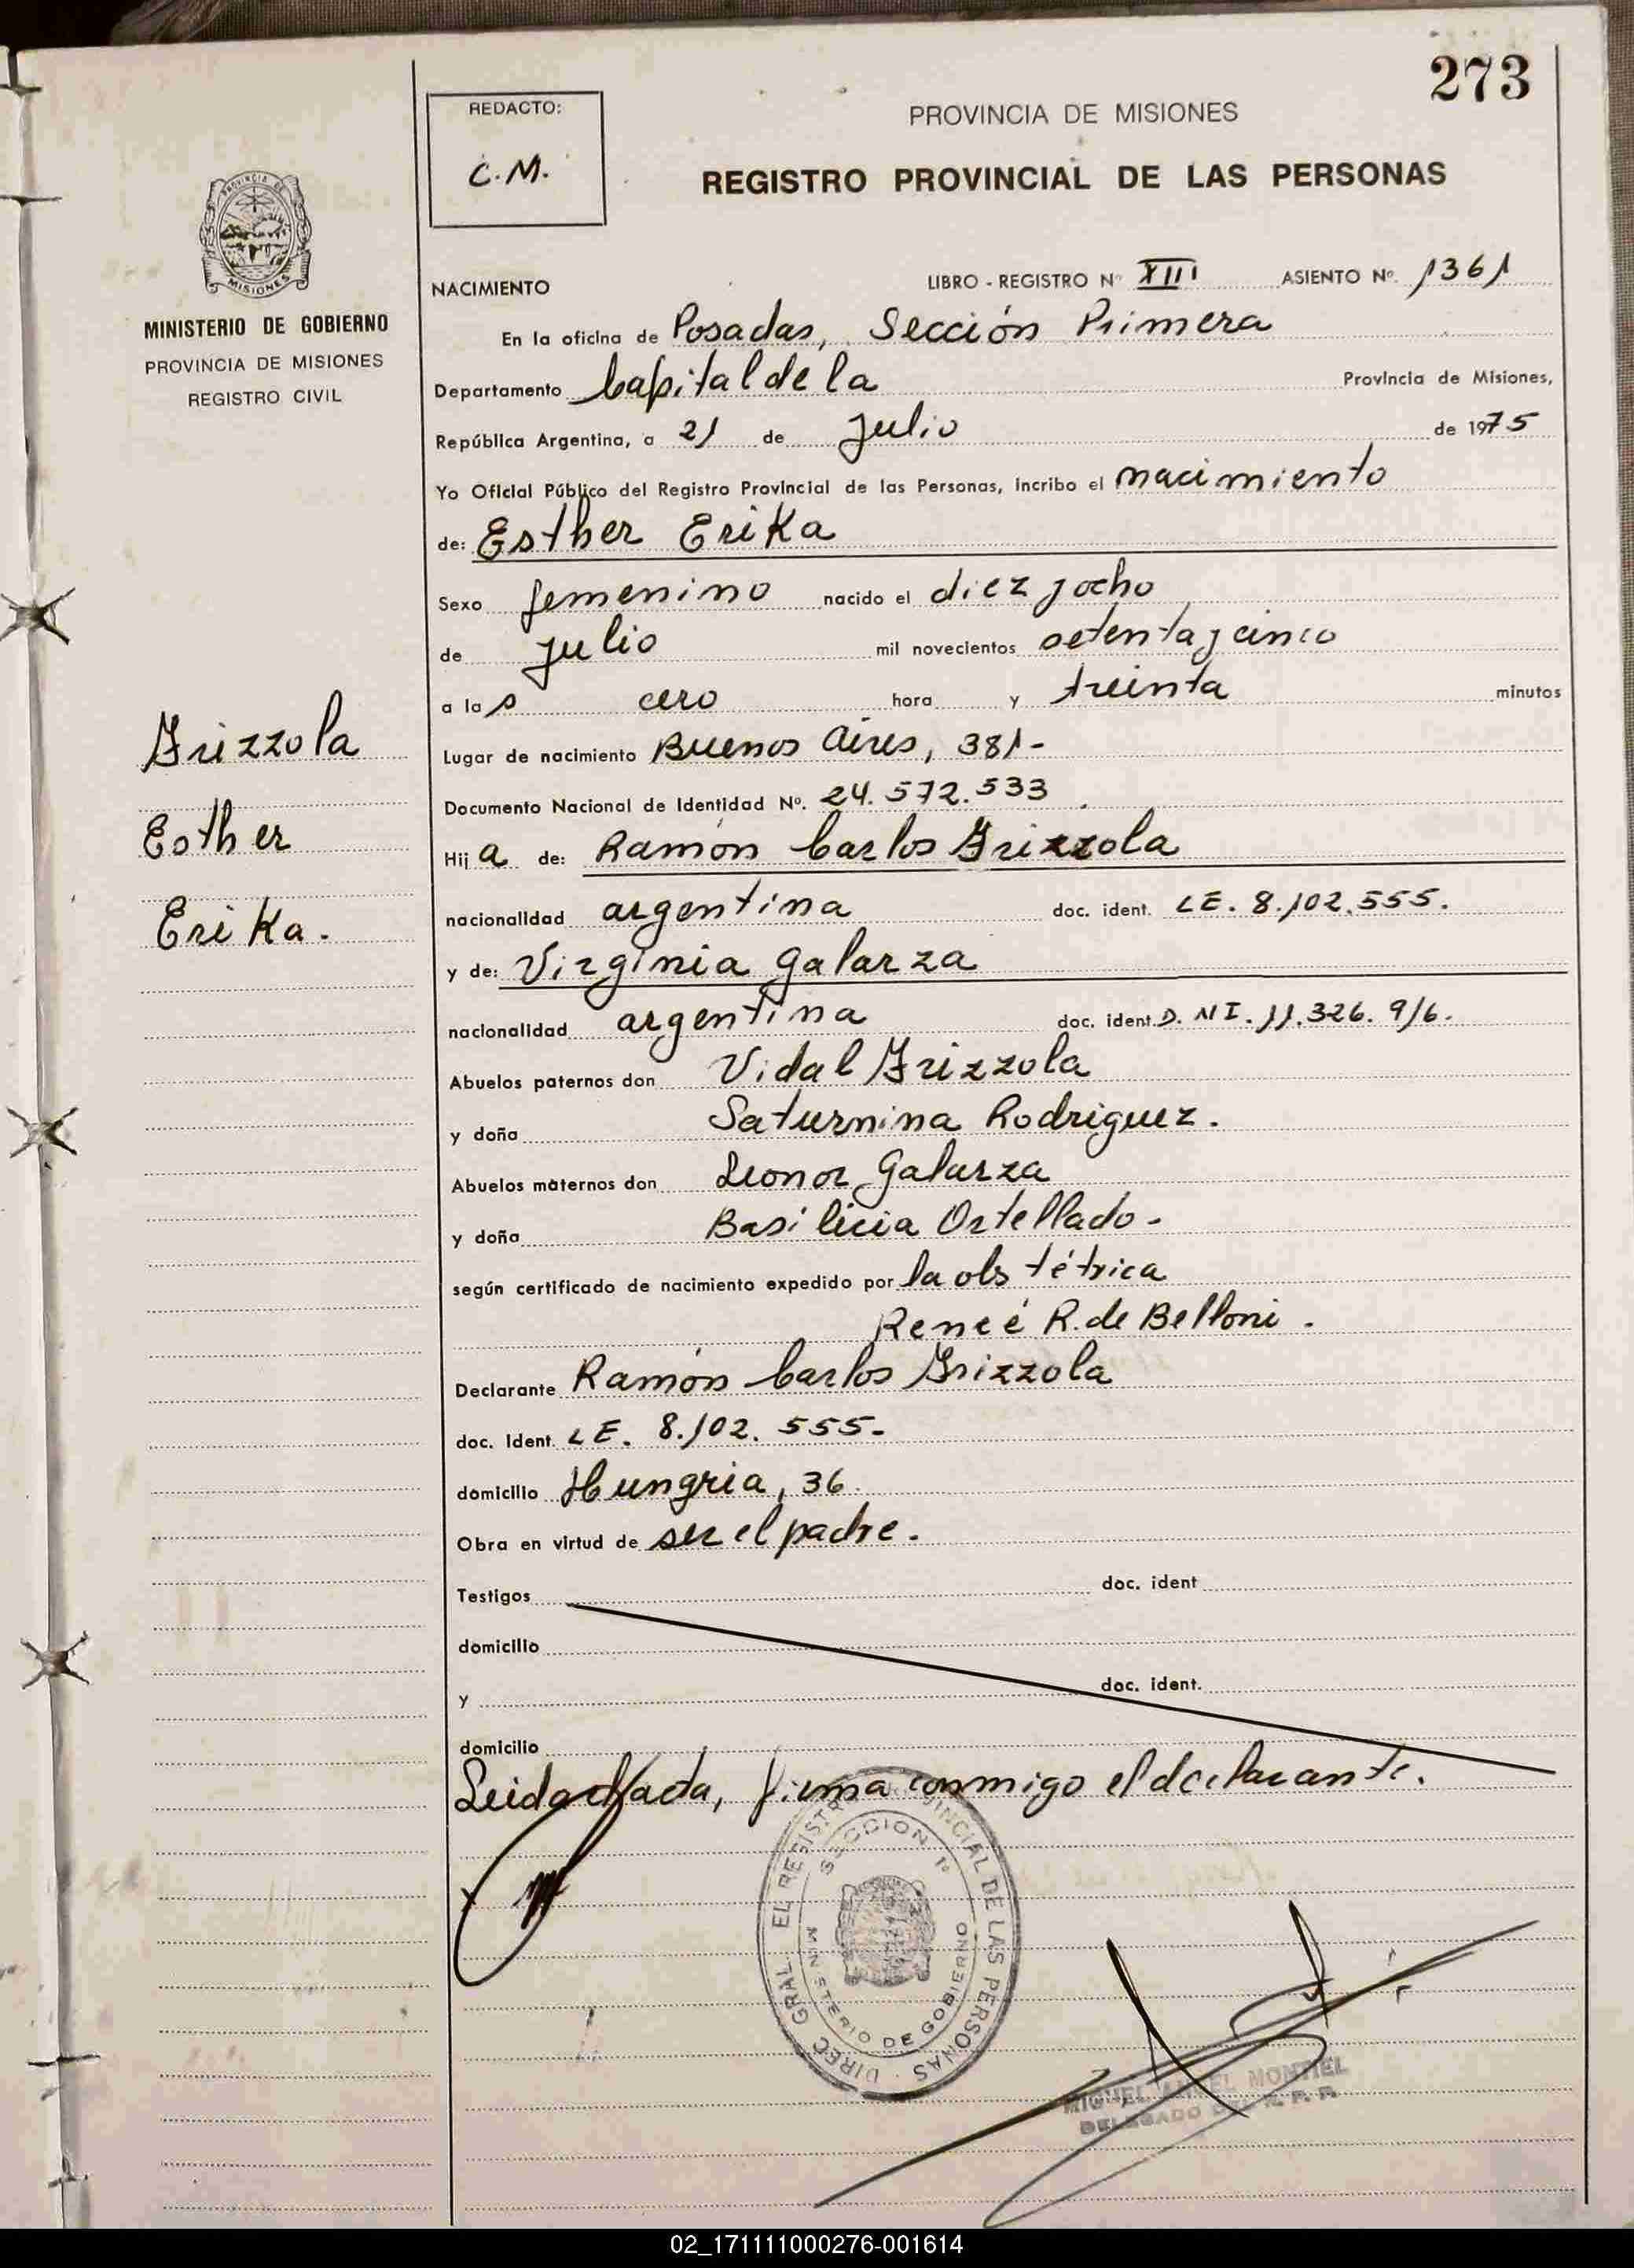 273
REDACTO:
C.M.
PROVINCIA DE MISIONES
REGISTRO PROVINCIAL DE LAS PERSONAS
PROVINCIA DE
MISIONES
MINISTERIO DE GOBIERNO
PROVINCIA DE MISIONES
REGISTRO CIVIL
Grizzola
Esther
Erika.
NACIMIENTO LIBRO - REGISTRO Nº XIII ASIENTO Nº. 1361
En la oficina de Posadas, Sección Primera
Departamento Capital de la Provincia de Misiones,
República Argentina, a 21 de Julio de 1975
Yo Oficial Público del Registro Provincial de las Personas, incribo el nacimiento
de: Esther Erika
Sexo femenino nacido el diez y ocho
de Julio mil novecientos setenta y cinco
a las cero hora y treinta minutos
Lugar de nacimiento Buenos Aires, 381-
Documento Nacional de Identidad Nº. 24.572.533
Hija de: Ramón Carlos Grizzola
nacionalidad argentina doc. ident. LE. 8.102.555.
y de: Virginia Galarza
nacionalidad argentina doc. ident. D.NI. 11.326.916.
Abuelos paternos don Vidal Grizzola
y doña Saturnina Rodriguez.
Abuelos maternos don Leonor Galarza
y doña Basilicia Ortellado-
según certificado de nacimiento expedido por la obstétrica
Reneé R. de Belloni.
Declarante Ramón Carlos Grizzola
doc. Ident. LE. 8.102.555-
domicilio Hungria, 36.
Obra en virtud de ser el padre.
Testigos doc. ident
domicilio
y doc. ident.
domicilio
Leida el acta, firma conmigo el declarante.
DIREC GRAL EL REGISTRO PROVINCIAL DE LAS PERSONAS
SECCION 1º
MINISTERIO DE GOBIERNO
MIGUEL ANGEL MONTIEL
DELEGADO DEL R. P. P.
02_171111000276-001614